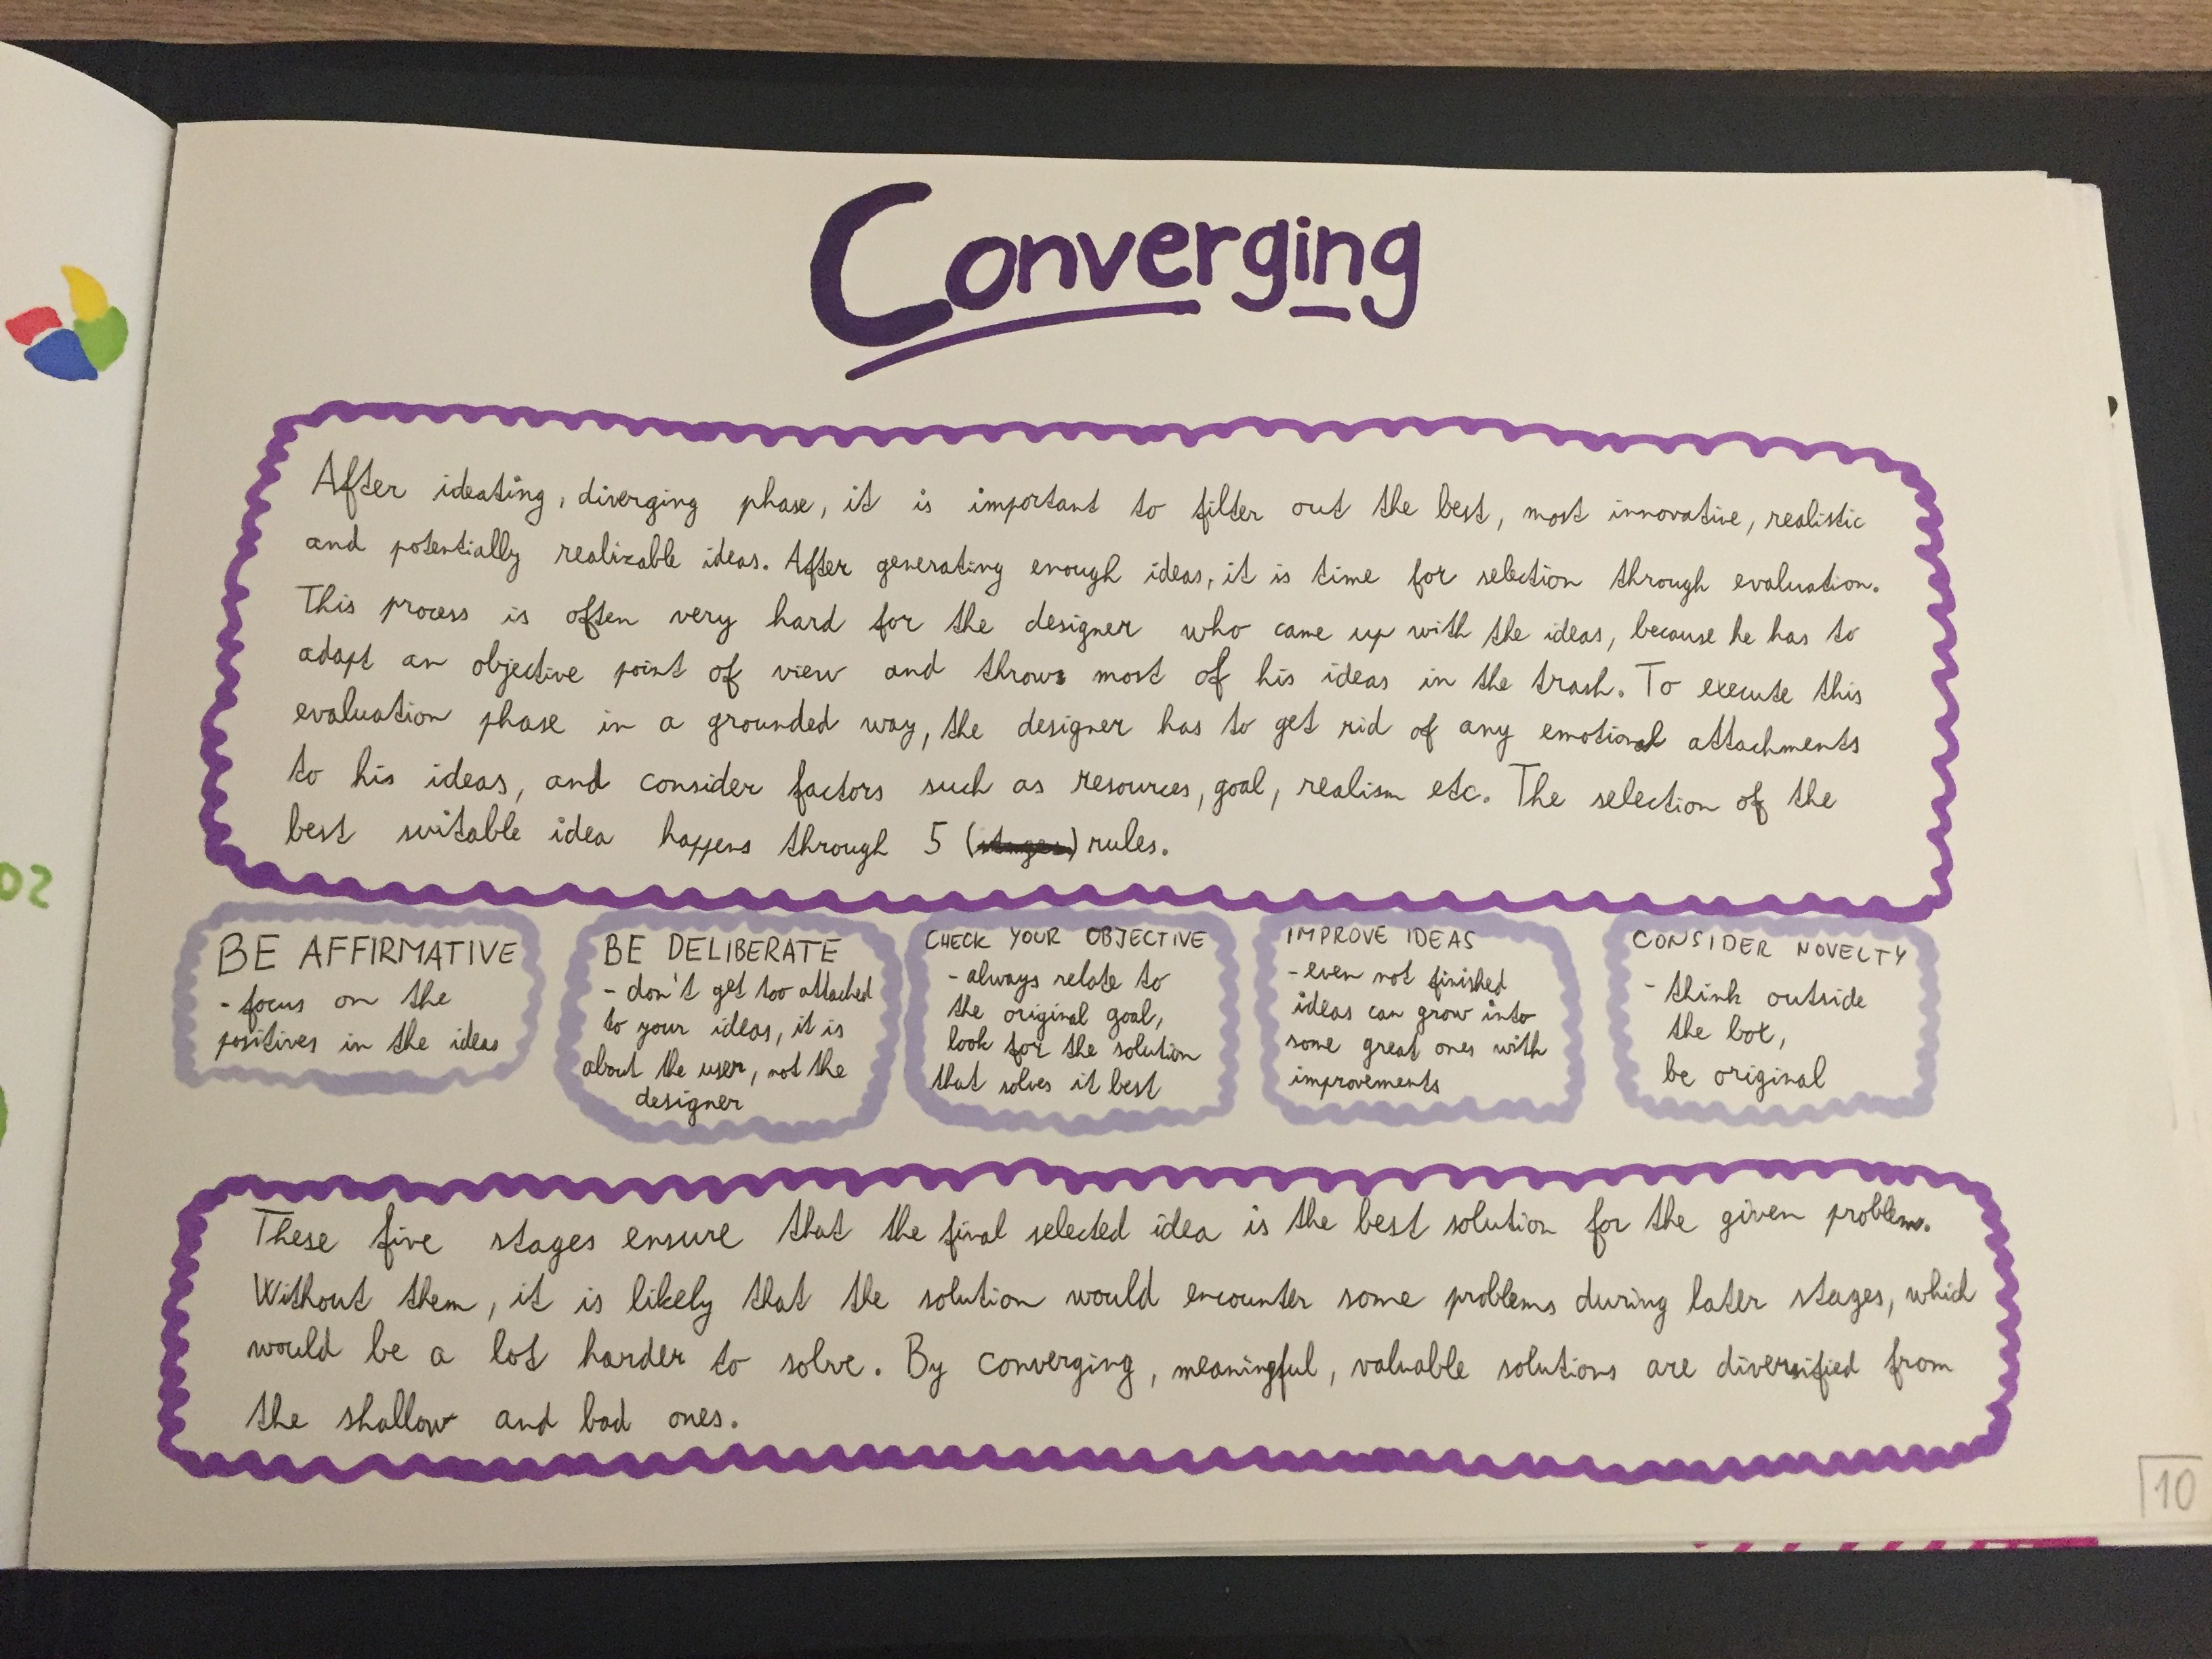 Converging
After ideating, diverging phase, it is important to filter out the best, most innovative, realistic
and potentially realizable ideas. After generating enough ideas, it is time for selection through evaluation.
This process is often very hard for the designer who came up with the ideas, because he has to
adapt an objective point of view and throws most of his ideas in the trash. To execute this
evaluation phase in a grounded way, the designer has to get rid of any emotional attachments
to his ideas, and consider factors such as resources, goal, realism etc. The selection of the
best suitable idea happens through 5 (stages) rules.
BE AFFIRMATIVE
- focus on the
positives in the ideas
BE DELIBERATE
- don't get too attached
to your ideas, it is
about the user, not the
designer
CHECK YOUR OBJECTIVE
- always relate to
the original goal,
look for the solution
that solves it best
IMPROVE IDEAS
- even not finished
ideas can grow into
some great ones with
improvements
CONSIDER NOVELTY
- think outside
the box,
be original
These five stages ensure that the final selected idea is the best solution for the given problem.
Without them, it is likely that the solution would encounter some problems during later stages, which
would be a lot harder to solve. By converging, meaningful, valuable solutions are diversified from
the shallow and bad ones.
10